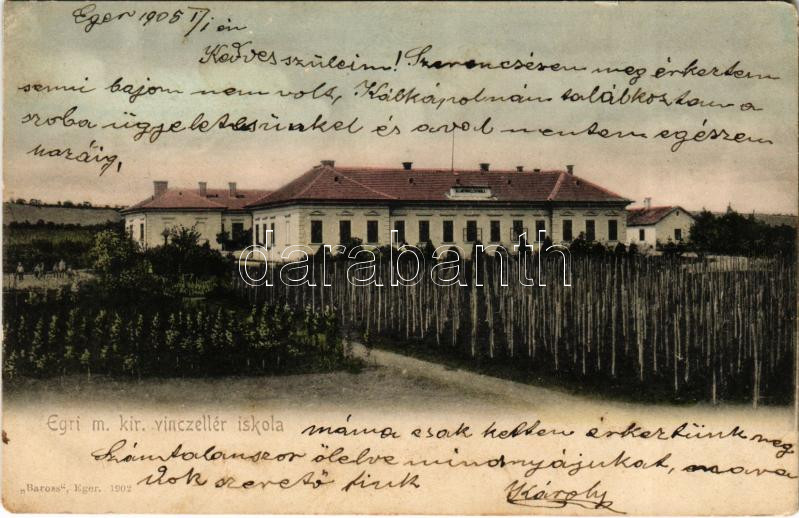 Eger 1905 I/1 én
Kedves szüleim! Szerencsésen meg érkeztem
semmi bajom nem volt, Kálkápolnán találkoztam a
szoba ügyeletesünkel és aval mentem egészem
hazáig,
darabanth
Egri m. kir. vinczellér iskola
máma csak ketten érkeztünk meg
Számtalanszor ölelve mindnyájukat, marad
szerető fiuk
„Baross", Eger. 1902
Károly